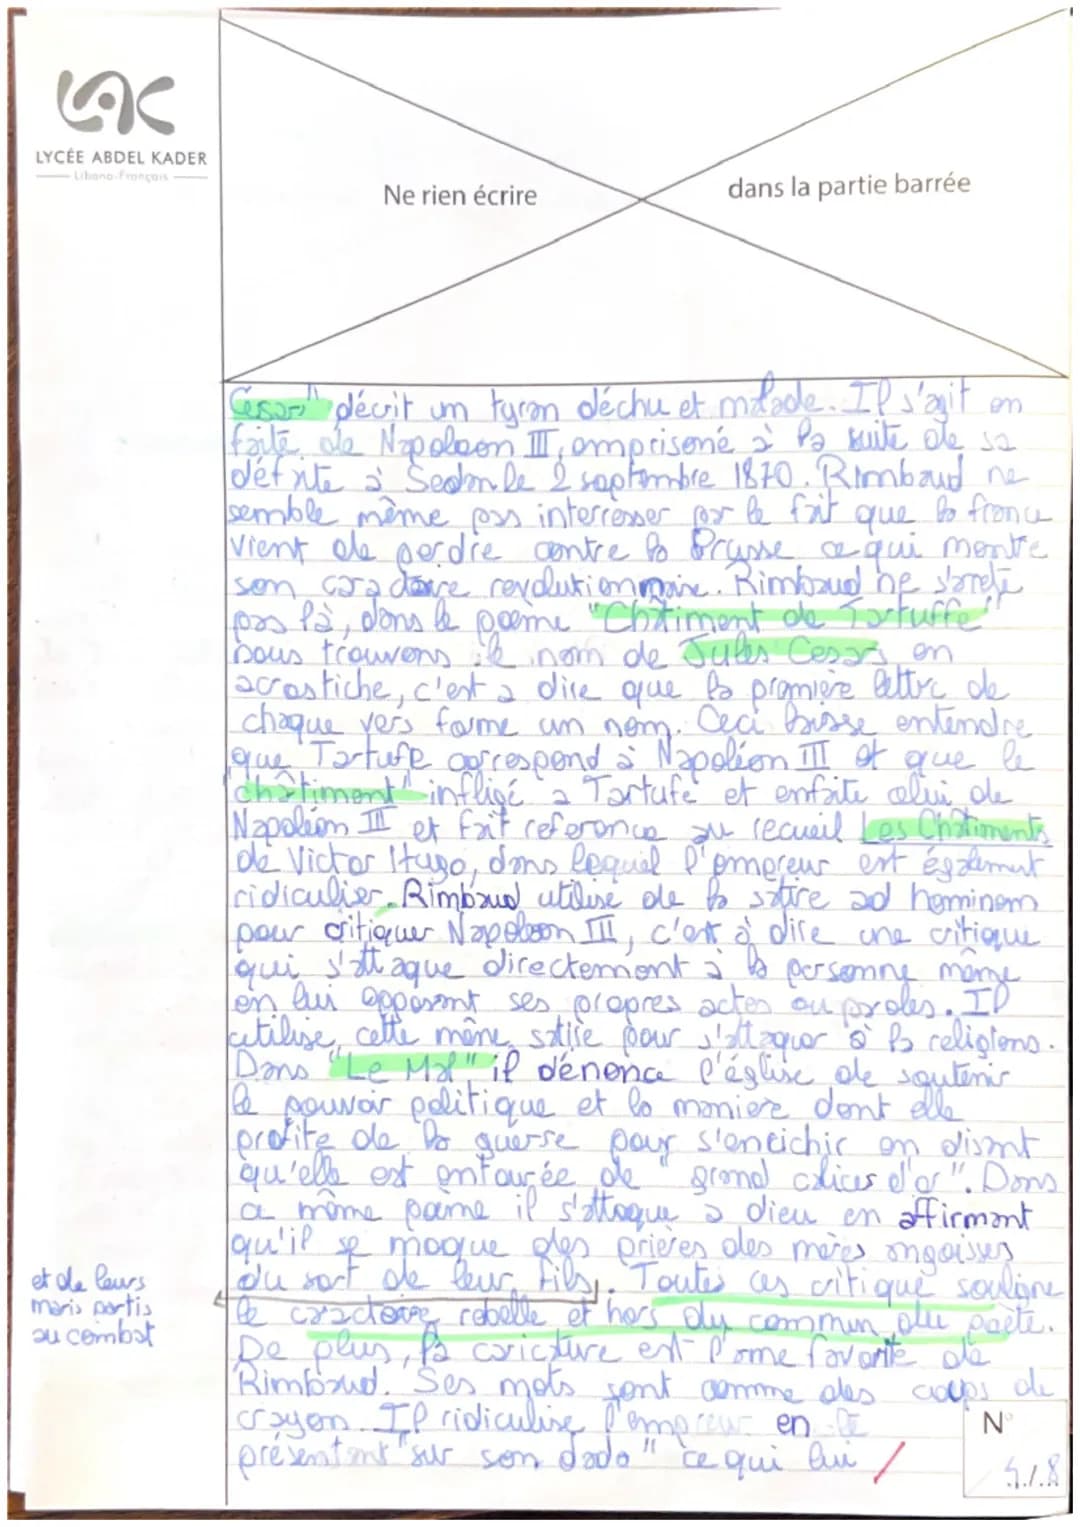 LAC
LYCÉE ABDEL KADER
Libano-Français
Ne rien écrire
dans la partie barrée
César" décrit un tyran déchu et malade. Il s'agit en
faite, de Napoleon III, emprisoné à la suite de sa
défaite à Sedan le 2 septembre 1870. Rimbaud ne
semble même pas interresser par le fait que la france
vient de perdre contre la Prusse ce qui montre
son caractère revolutionnaire. Rimbaud ne s'arrete
pas là, dans le poème "Châtiment de Tartuffe"
nous trouvons le nom de Jules Cesar en
acrostiche, c'est a dire que la première lettre de
chaque vers forme un nom. Ceci laisse entendre
que Tartufe correspond à Napoléon III et que le
"châtiment" infligé a Tartufe et enfaite celui de
Napoléon III et fait reference au recueil Les Chatiments
de Victor Hugo, dans lequel l'empereur est également
ridiculier. Rimbaud utilise de la satire ad hominem
pour critiquer Napoleon III, c'est à dire une critique
qui s'attaque directement à la personne même
en lui opposant ses propres actes ou proles. Il
utilise cette même satire pour s'attaquer à la religions.
Dans "Le Mal" il dénonce l'église de soutenir
le pouvoir politique et la maniere dont elle
profite de la guerre pour s'enrichir en disant
qu'elle est entourée de "grand calices d'or". Dans
ce même poème il s'attaque a dieu en affirmant
qu'il se moque des prières des mères angoisser
du sort de leur fils. Toutes ces critique souligne
et de leurs
maris partis
au combat
le caractère rebelle et hors du commun du poète.
De plus, la caricature est l'arme favorite de
Rimbaud. Ses mots sont comme des coups de
crayon. Il ridiculise l'empereur en le
présentant "sur son dada" ce qui lui
N°
5./.8